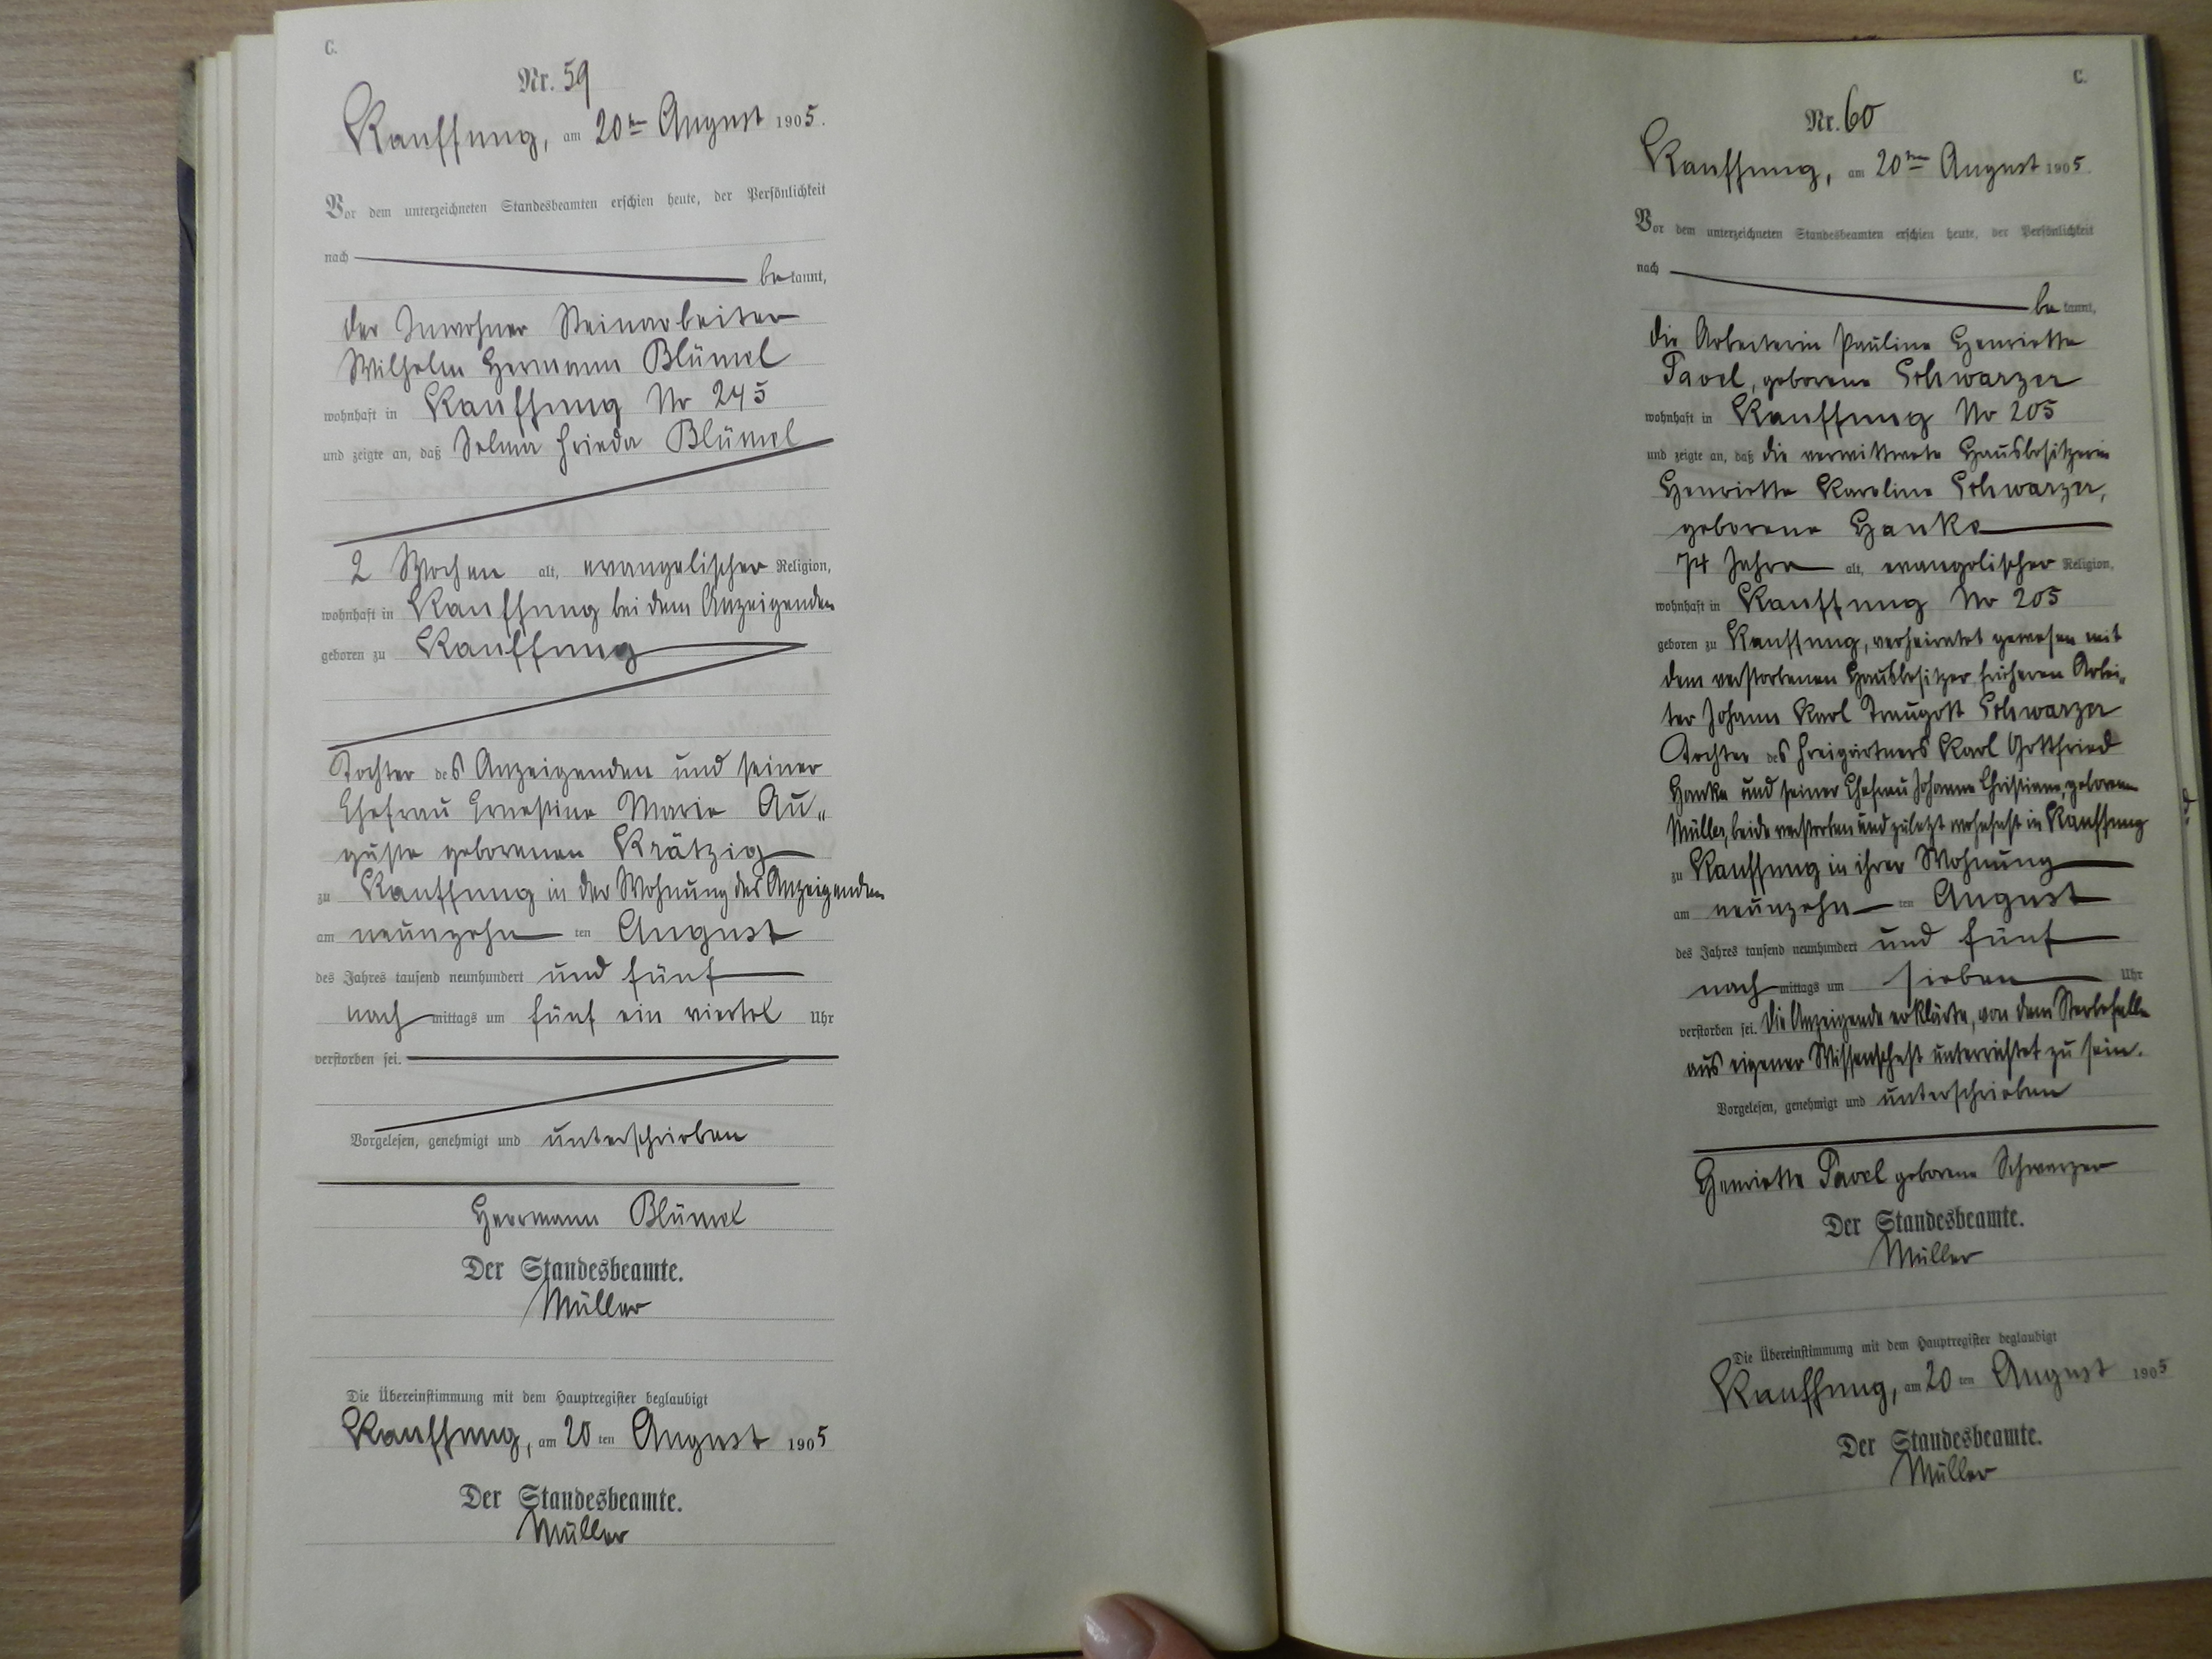 C.
Nr. 59
Kauffung, am 20ten August 1905.
Vor dem unterzeichneten Standesbeamten erschien heute, der Persönlichkeit
nach
bekannt,
der Inwohner Steinarbeiter
Wilhelm Hermann Blümel
wohnhaft in Kauffung No 245
und zeigte an, daß Selma Frieda Blümel
2 Wochen alt, evangelischer Religion,
wohnhaft in Kauffung bei dem Anzeigenden
geboren zu Kauffung
Tochter des Anzeigenden und seiner
Ehefrau Ernestine Marie Au„
guste geborenen Krätzig
zu Kauffung in der Wohnung des Anzeigenden
am neunzehnten August
des Jahres tausend neunhundert und fünf
nachmittags um fünf ein viertel Uhr
verstorben sei.
Vorgelesen, genehmigt und unterschrieben
Herrmann Blümel
Der Standesbeamte.
Müller
Die Übereinstimmung mit dem Hauptregister beglaubigt
Kauffung, am 20ten August 1905
Der Standesbeamte.
Müller
C.
Nr. 60
Kauffung, am 20ten August 1905.
Vor dem unterzeichneten Standesbeamten erschien heute, der Persönlichkeit
nach
bekannt,
die Arbeiterin Pauline Henriette
Pavel, geborene Schwarzer
wohnhaft in Kauffung No 205
und zeigte an, daß die verwittwete Hausbesitzerin
Henriette Karoline Schwarzer,
geborene Hanke
74 Jahre alt, evangelischer Religion,
wohnhaft in Kauffung No 205
geboren zu Kauffung, verheiratet gewesen mit
dem verstorbenen Hausbesitzer früheren Arbei„
ter Johann Karl Traugott Schwarzer
Tochter des Freigärtners Karl Gottfried
Hanke und seiner Ehefrau Johanne Christiane, geborene
Müller, beide verstorben und zuletzt wohnhaft in Kauffung
zu Kauffung in ihrer Wohnung
am neunzehnten August
des Jahres tausend neunhundert und fünf
nachmittags um sieben Uhr
verstorben sei. Die Anzeigende erklärte, von dem Sterbefalle
aus eigener Wissenschaft unterrichtet zu sein.
Vorgelesen, genehmigt und unterschrieben
Henriette Pavel geborene Schwarzer
Der Standesbeamte.
Müller
Die Übereinstimmung mit dem Hauptregister beglaubigt
Kauffung, am 20ten August 1905
Der Standesbeamte.
Müller